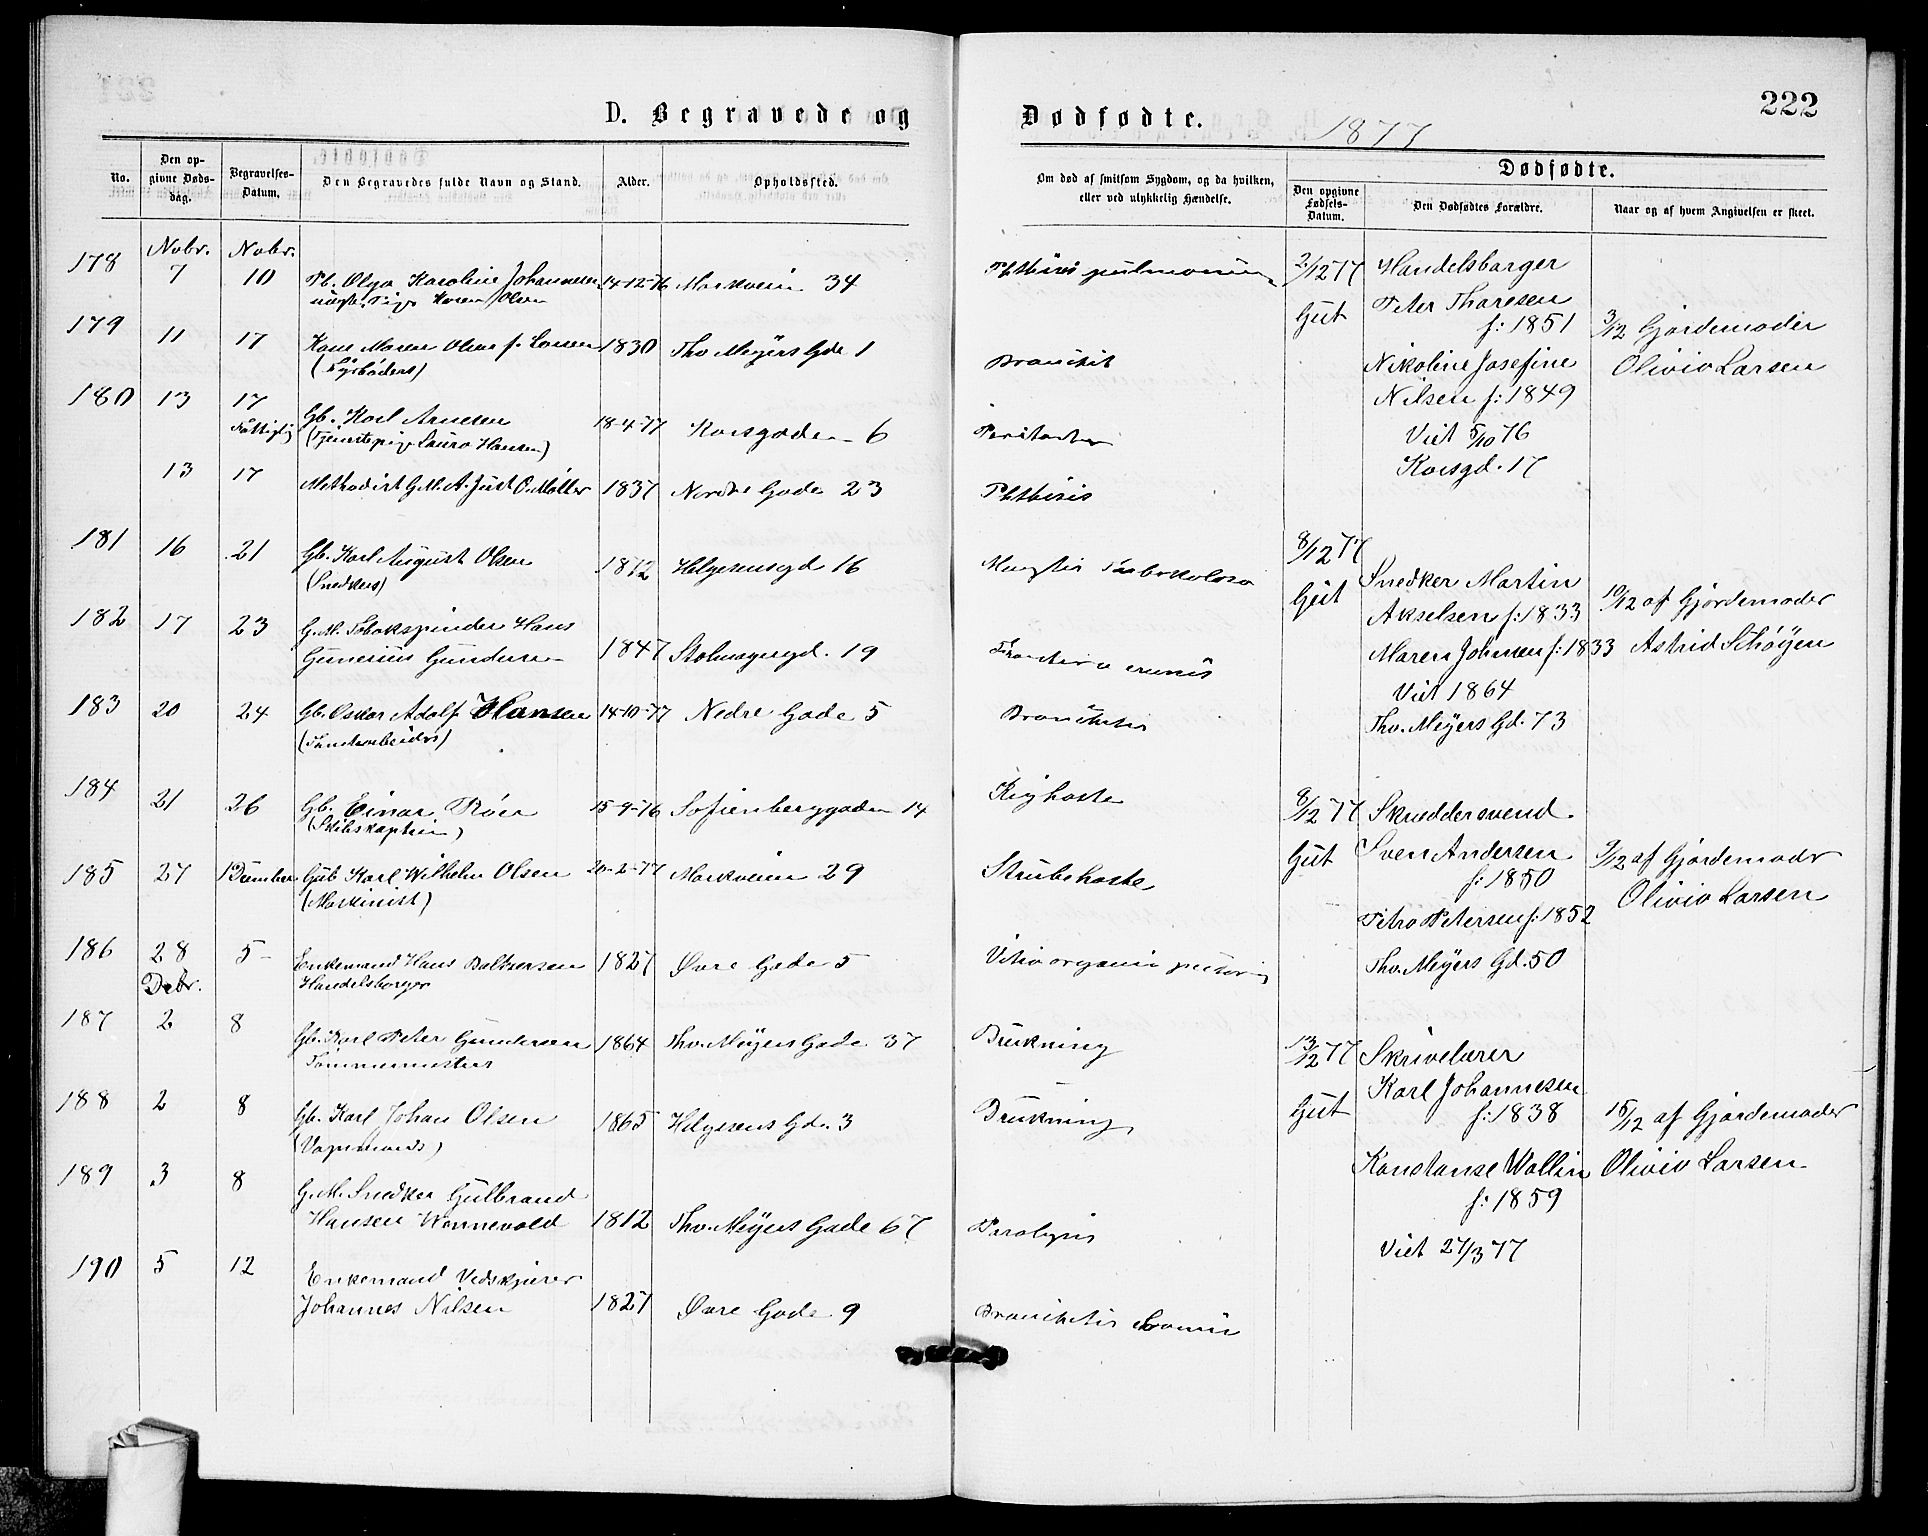 222
D. Begravede og Dødfødte.
1877
No.
Den opgivne Dødsdag.
Begravelses-Datum.
Den Begravedes fulde Navn og Stand.
Alder.
Opholdssted.
Om død af smitsom Sygdom, og da hvilken, eller ved ulykkelig Hændelse.
Dødfødte.
Den opgivne Fødsels-Datum.
Den Dødfødtes Forældre.
Naar og af hvem Angivelsen er skeet.
Nobr. Nobr.
178 7 10 Pb. Olga Karoline Johannesen 14-12-76 Markveien 34 Phthisis pulmonum
179 11 17 Kone Maren Oline f. Larsen 1830 Thv. Meyers Gde 1 Bronchit
(Fyrbøders)
180 13 17 Gb. Karl Arnesen 18-4-77 Korsgaden 6
Fattiglig (Tjenestepige Laura Hansen)
13 17 Methodist G.M. A. Just C. Møller 1837 Nordre Gade 23 Phthisis
181 16 21 Gb. Karl August Olsen 1872 Helgesensgd 16
(Snedkers)
182 17 23 G.M. Tobakspinder Hans
Gunerius Gundersen 1847 19
183 20 24 Gb. Oskar Adolf Hansen 14-10-77 Nedre Gade 5 Bronchitis
184 21 26 Gb. Einar Røer 15-9-76 Sofienberggaden 14 Kighoste
(Skibskaptein)
185 27 1 December Gut Karl Wilhelm Olsen 20-2-77 Markveien 29 Strubehoste
(Maskinist)
186 28 5 Enkemand Hans Baltzersen 1827 Øvre Gade 5 Vitium organic pectoris
Debr. Handelsborger
187 2 8 Gb. Karl Peter Gundersen 1864 Thv. Meyers Gade 37 Drukning
Tømmermesters
188 2 8 Gb. Karl Johan Olsen 1865 Helgesens Gd. 3 Drukning
(Vognmands)
189 3 8 G.M. Snedker Gulbrand
Hansen Wennevold 1812 Thv. Meyers Gade 67 Paralysis
190 5 12 Enkemand Vedskjærer
Johannes Nilsen 1827 Øvre Gade 9 Bronchitis
2/12 77 Handelsborger
Gut Peter Thoresen
f: 1851 3/12 Gjordemoder
Nikoline Josefine Olivia Larsen
Nilsen f: 1849
Viet 5/10 76
Korsgd. 17
8/12 77
Gut Snedker Martin
Akselsen f: 1833 10/12 af Gjordemoder
Maren Johnsen f: 1833 Astrid Schøyen
Viet 1864
Thv. Meyers Gd. 73
8/12 77 Skreddersvend
Gut Sven Andersen 9/12 af Gjordemoder
f: 1850 Olivia Larsen
Petra Petersen f: 1852
Thv. Meyers Gd. 50
13/12 77 Skrivelærer
Gut Karl Johannesen
f: 1838 15/12 af Gjordemoder
Konstanse Wallin Olivia Larsen
f: 1859
Viet 27/3 77